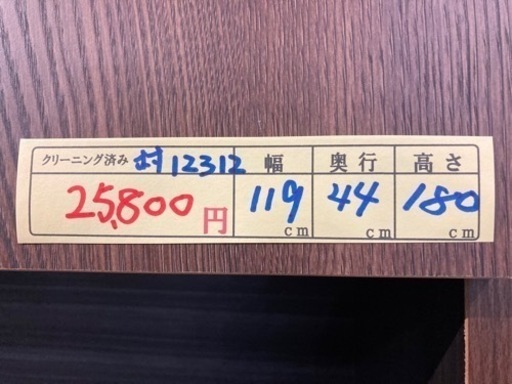 クリーニング済み 村12312 幅 奥行 高さ
25,800円 119cm 44cm 180cm